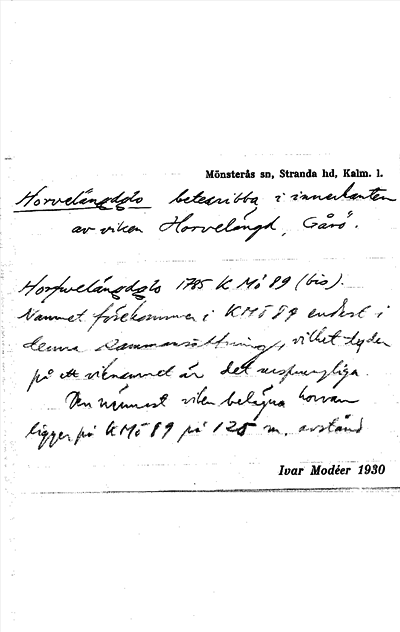 Mönsterås sn, Stranda hd, Kalm. l.
Horvelängdglo betesribba i innerkanten
av viken Horvelängd, Gårö.
Horfwelängdglo 1785 K Mö 89 (bis).
Namnet förekommer i K Mö 89 endast i
denna sammansättning, vilket tyder
på att viknamnet är det ursprungliga.
Den närmast viken belägna horvan
ligger på K Mö 89 på 125 m. avstånd
Ivar Modéer 1930